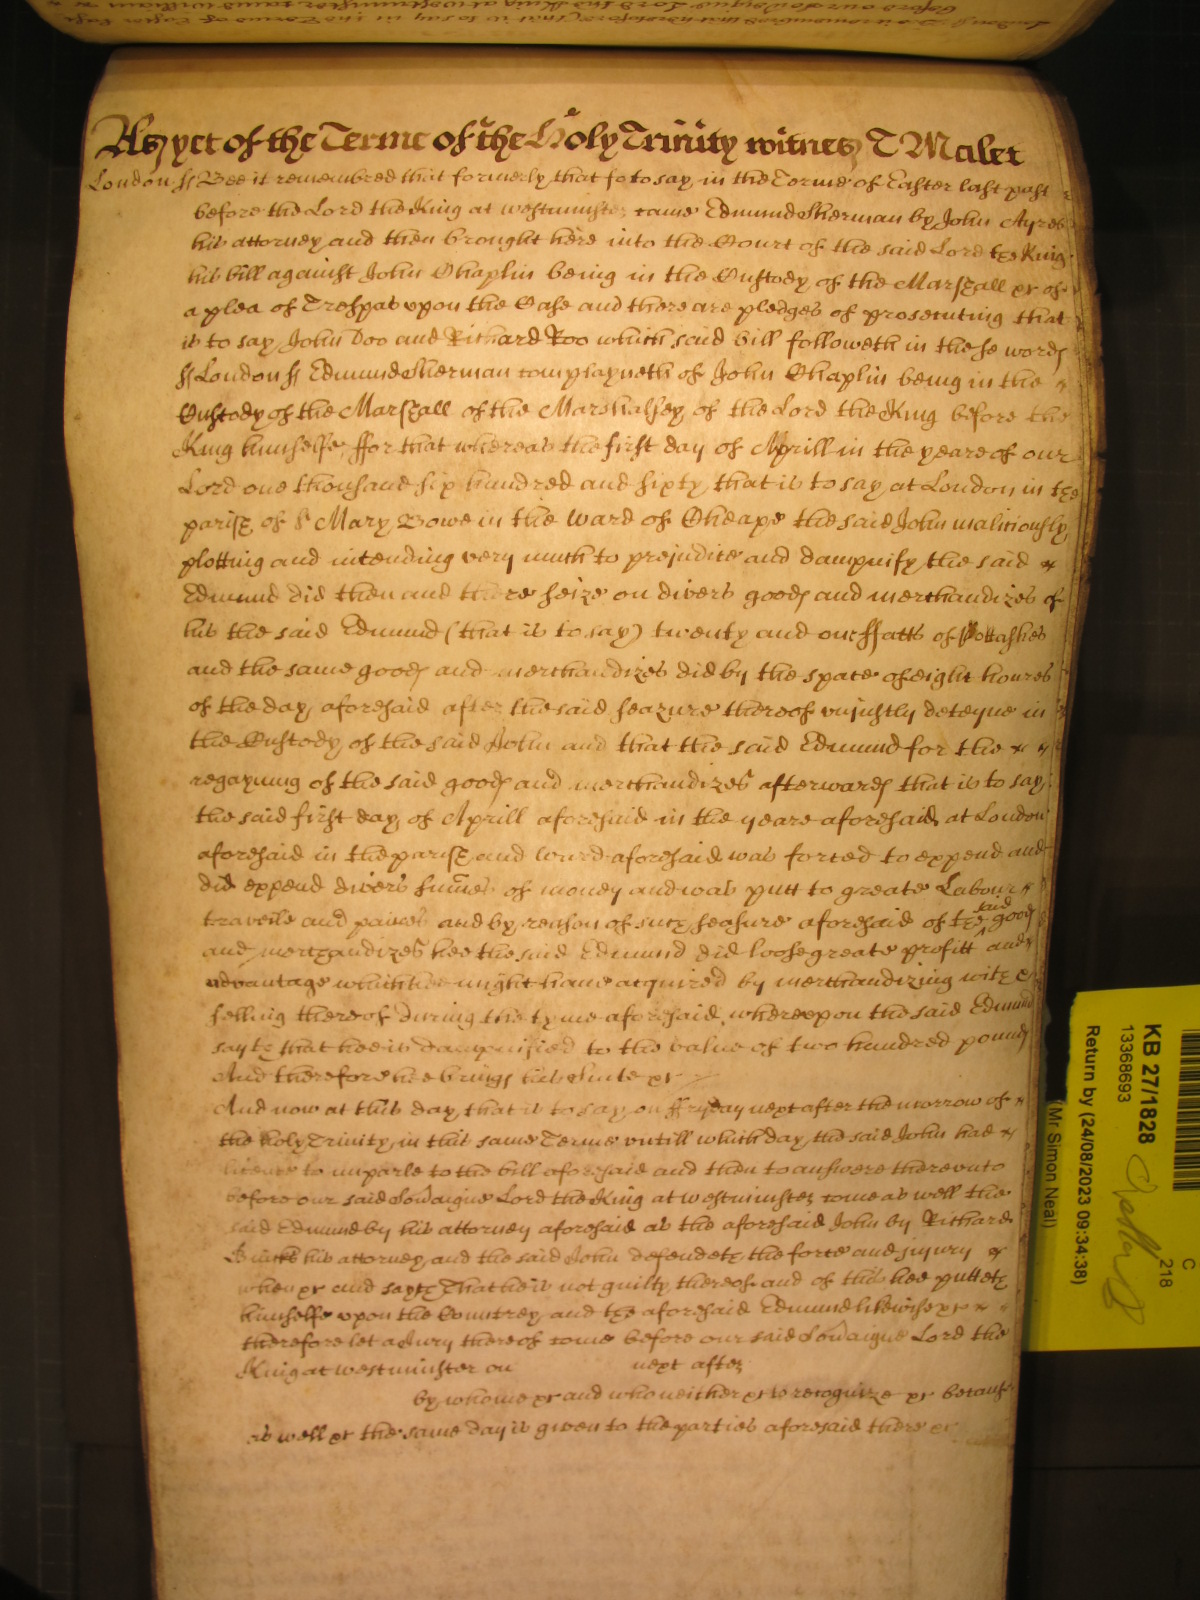 As yet of the Terme of the Holy Trinity witnes T Malet
London ss Bee it remembred that formerly that is to say in the Terme of Easter last past
before the Lord the King at westminster came Edmund Sherman by John Ayres
his attorney and then brought here into the Court of the said Lord the King
his bill against John Chaplin being in the Custody of the Marshall &c of
a plea of Trespas upon the Case and there are pledges of prosecuting that
is to say John Doo and Richard Roo which said bill followeth in these words
ss London ss Edmund Sherman complayneth of John Chaplin being in the
Custody of the Marshall of the Marshalsey of the Lord the King before the
King himselfe ffor that whereas the first day of Aprill in the yeare of our
Lord one thousand six hundred and sixty that is to say at London in the
parish of St Mary Bowe in the ward of Cheape the said John malitiously
plotting and intending very much to prejudice and dampnify the said
Edmund did then and there seize on divers goods and merchandizes of
his the said Edmund (that is to say) twenty and one ffatts of Pottashes
and the same goods and merchandizes did by the space of eight houres
of the day aforesaid after the said seazure thereof unjustly deteyne in
the Custody of the said John and that the said Edmund for the
regayning of the said goods and merchandizes afterwards that is to say
the said first day of Aprill aforesaid in the yeare aforesaid at London
aforesaid in the parish and ward aforesaid was forced to expend and
did expend divers sumes of money and was putt to greate Labour
traveile and paines and by reason of such seasure aforesaid of the said goods
and merchandizes hee the said Edmund did loose greate profitt and
advantage which hee might have acquired by merchandizing with &
selling thereof during the tyme aforesaid whereupon the said Edmund
sayth that hee is dampnified to the value of two hundred pounds
And therefore hee brings this Suite &c
And now at this day that is to say on ffryday next after the morrow of
the holy Trinity in this same Terme untill which day the said John had
licence to imparle to the bill aforesaid and then to answere thereunto
before our said Sovraigne Lord the King at westminster come as well the
said Edmund by his attorney aforesaid as the aforesaid John by Richard
his attorney and the said John defendeth the force and injury
when &c and sayth That he is not guilty thereof and of this hee putteth
himselfe upon the Countrey and the aforesaid Edmund likewise &c
therefore let a Jury thereof come before our said Sovraigne Lord the
King at westminster on next after
by whome &c and who neither &c to recognize &c because
as well &c the same day is given to the parties aforesaid there &c
KB 27/1828
13368693
Return by (24/08/2023 09:34:38)
(Mr Simon Neal)
C
218